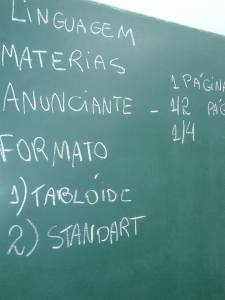 LINGUAGEM
MATERIAS
1 PÁGINA
ANUNCIANTE - 1/2 PÁG
1/4
FORMATO
1) TABLÓIDE
2) STANDART